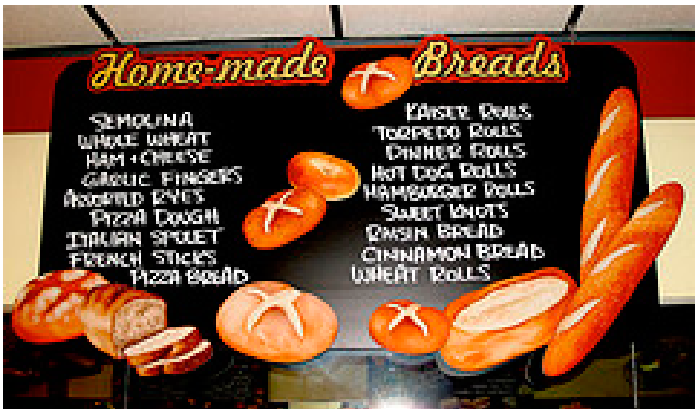 Home-made Breads
SEMOLINA
WHOLE WHEAT
HAM + CHEESE
GARLIC FINGERS
ASSORTED RYES
PIZZA DOUGH
ITALIAN SPOLET
FRENCH STICKS
PIZZA BREAD
KAISER ROLLS
TORPEDO ROLLS
DINNER ROLLS
HOT DOG ROLLS
HAMBURGER ROLLS
SWEET KNOTS
RAISIN BREAD
CINNAMON BREAD
WHEAT ROLLS